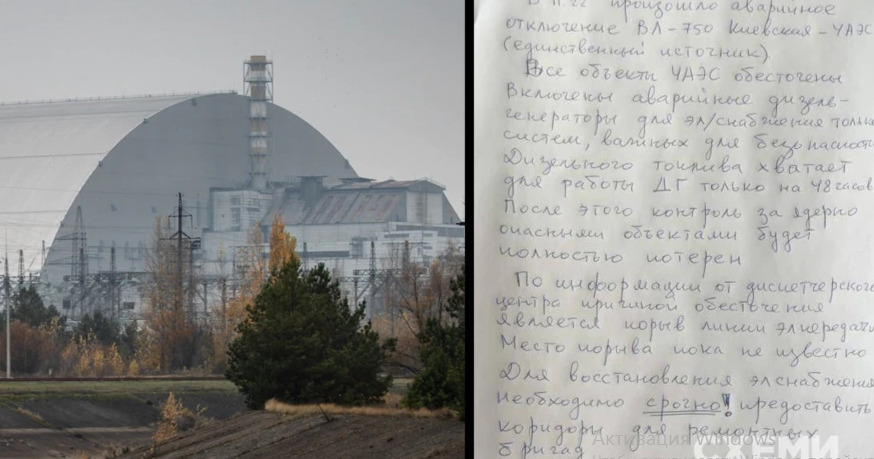 В 11.22 произошло аварийное
отключение ВЛ-750 Киевская - ЧАЭС
(единственный источник)
Все объекты ЧАЭС обесточены
Включены аварийные дизель-
генераторы для эл/снабжения только
систем, важных для безопасности
Дизельного топлива хватает
для работы ДГ только на 48 часов
После этого контроль за ядерно
опасными объектами будет
полностью потерян
По информации от диспетчерского
центра причиной обесточения
является порыв линии элпередачи
Место порыва пока не известно
Для восстановления элснабжения
необходимо срочно! предоставить
коридоры для ремонтных
Активация Windows
бригад
СХЕМИ